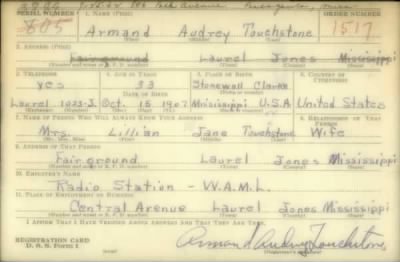 SERIAL NUMBER 1. NAME (Print) ORDER NUMBER
605 Armand Audrey Touchstone 1517
(First) (Middle) (Last)
2. ADDRESS (Print)
Fairground Laurel Jones Mississippi
3. TELEPHONE 4. AGE IN YEARS 5. PLACE OF BIRTH 6. COUNTRY OF CITIZENSHIP
Yes 33 Stonewall Clarke
DATE OF BIRTH
Laurel 1023-J. Oct. 15 1907 Mississippi U.S.A United States
7. NAME OF PERSON WHO WILL ALWAYS KNOW YOUR ADDRESS 8. RELATIONSHIP OF THAT PERSON
Mrs. Lillian Jane Touchstone Wife
9. ADDRESS OF THAT PERSON
Fairground Laurel Jones Mississippi
10. EMPLOYER'S NAME
Radio Station - W.A.M.L.
11. PLACE OF EMPLOYMENT OR BUSINESS
Central Avenue Laurel Jones Mississippi
I AFFIRM THAT I HAVE VERIFIED ABOVE ANSWERS AND THAT THEY ARE TRUE.
REGISTRATION CARD
D. S. S. Form 1 Armand Audrey Touchstone